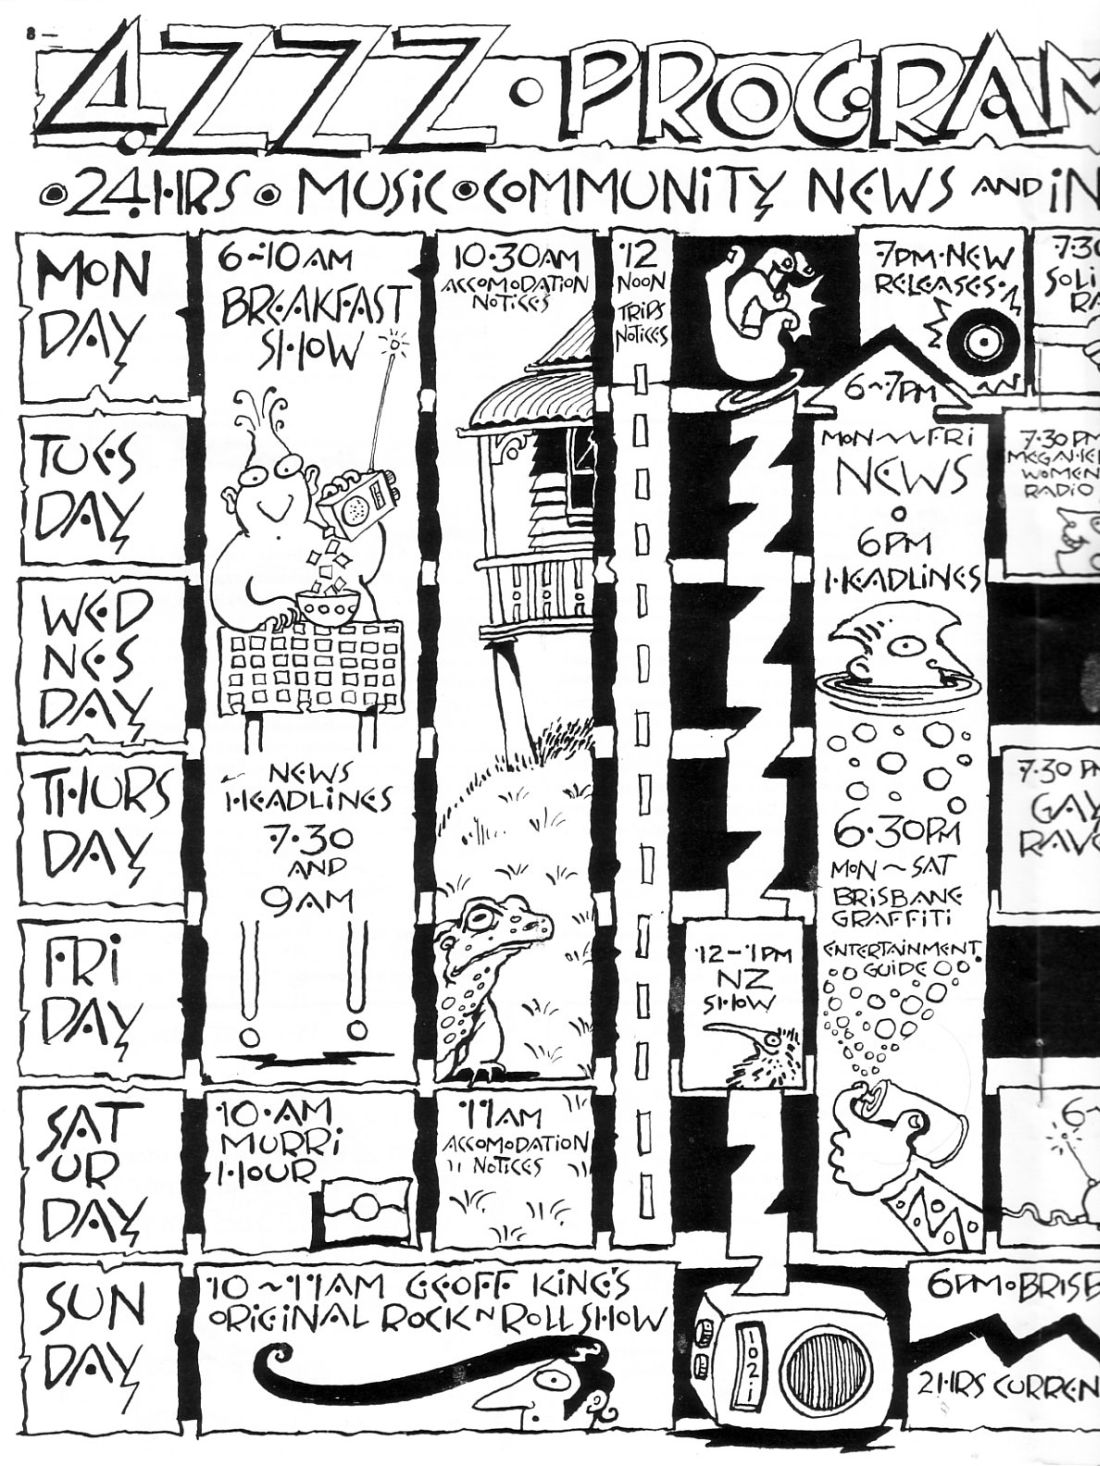 8 —
4ZZZ • PROGRAM
• 24HRS • MUSIC • COMMUNITY NEWS AND IN
MON
DAY
6~10AM
BREAKFAST
SHOW
NEWS
HEADLINES
7.30
AND
9AM
10.30AM
ACCOMODATION
NOTICES
12
NOON
TRIPS
NOTICES
7PM•NEW
RELEASES•
7.30
SOLI
RA
6~7PM
MON~~FRI
NEWS
•
6PM
HEADLINES
6.30PM
MON~SAT
BRISBANE
GRAFFITI
ENTERTAINMENT
GUIDE
TUES
DAY
7.30PM
MEGAHER
WOMEN
RADIO
WED
NES
DAY
THURS
DAY
7.30PM
GAY
RAVE
FRI
DAY
12-1PM
NZ
SHOW
SAT
UR
DAY
10•AM
MURRI
HOUR
11AM
ACCOMODATION
NOTICES
6~
SUN
DAY
10~11AM GEOFF KING'S
ORIGINAL ROCK N ROLL SHOW
102.1
6PM•BRISB
2HRS CURREN